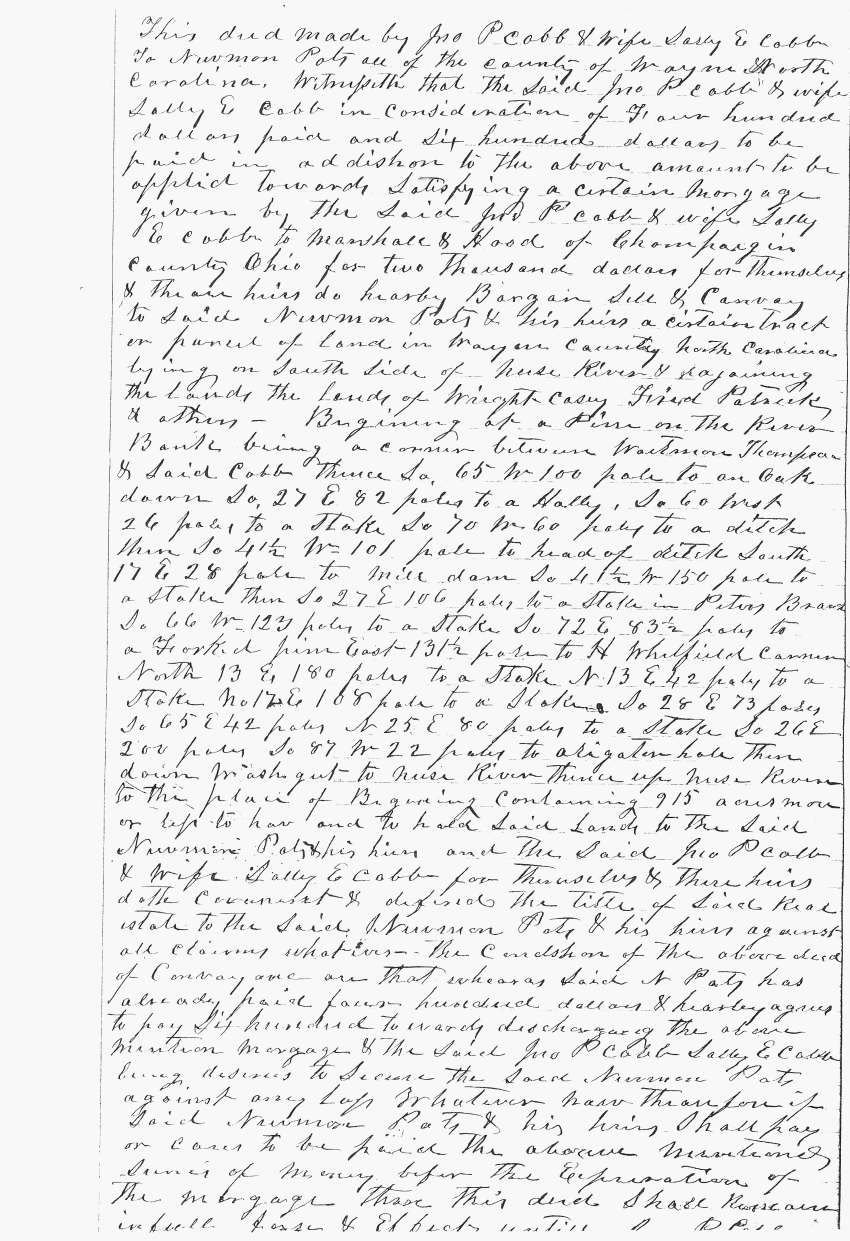 This deed made by Jno P Cobb & Wife Sally E Cobb
To Newmon Pats all of the county of Wayne North
Carolina. Witnesseth that the Said Jno P Cobb & wife
Sally E Cobb in consideration of Four hundred
dollars paid and Six hundred dollars to be
paid in addishon to the above amount to be
applid towards Satisfying a certain Morgage
given by the Said Jno P Cobb & wife Sally
E Cobb to Marshall & Hood of Champaegin
county Ohio for two thousand dollars for themselves
& theair heirs do hearby Bargain Sell & Convay
to Said Newmon Pats & his hirs a certain Tract
or parcel of land in Wayne County North Carolina
lying on South Side of Neuse River & ajoining
the lands the lands of Wright Casey Fried Patrick
& others - Begining at a Pine on the River
Bank being a corner between Waitmon Thompson
& Said Cobb thence So. 65 W 100 pole to an Oak
down So. 27 E 82 poles to a Holly, So 60 West
26 poles to a Stake So 70 W 60 poles to a ditch
then So 41½ W 101 pole to head of ditch South
17 E 28 pole to mill dam So 41½ W 150 pole to
a Stake then So 27 E 106 poles to a Stake in Peters Branch
So 66 W 123 poles to a Stake So 72 E 83½ poles to
a Forked pine East 131½ poles to H Whitfield Corner
North 13 E 180 poles to a Stake N 13 E 42 poles to a
Stake No 17 E 108 pole to a Stake So 28 E 73 poles
So 65 E 42 poles N 25 E 80 poles to a Stake So 26 E
200 poles So 87 W 22 poles to aligator hole then
down Wash gut to Neuse River thence up Neuse River
to the place of Begining Containing 915 acres more
or less to hav and to hold Said Lands to the Said
Newmon Pats & his hirs and the Said Jno P Cobb
& Wife Sally E Cobb for themselves & there hirs
doth Covenant & defend the title of Said Real
estate to the Said Newmon Pats & his hirs against
all claims whatever - the Condshon of the above deed
of Convayance are that whearas Said N Pats has
already paid four hundred dollars & hearby agrees
to pay Six hundred towards dischargeing the above
mention morgage & the Said Jno P Cobb Sally E Cobb
being desires to Secure the Said Newmon Pats
against any Loss Whatever now thearfore if
Said Newmon Pats & his hirs Shall pay
or caus to be paid the above mentiond
Sumes of money befor the Expiration of
the morgage thare this deed Shall Remain
in full forse & Effect untill